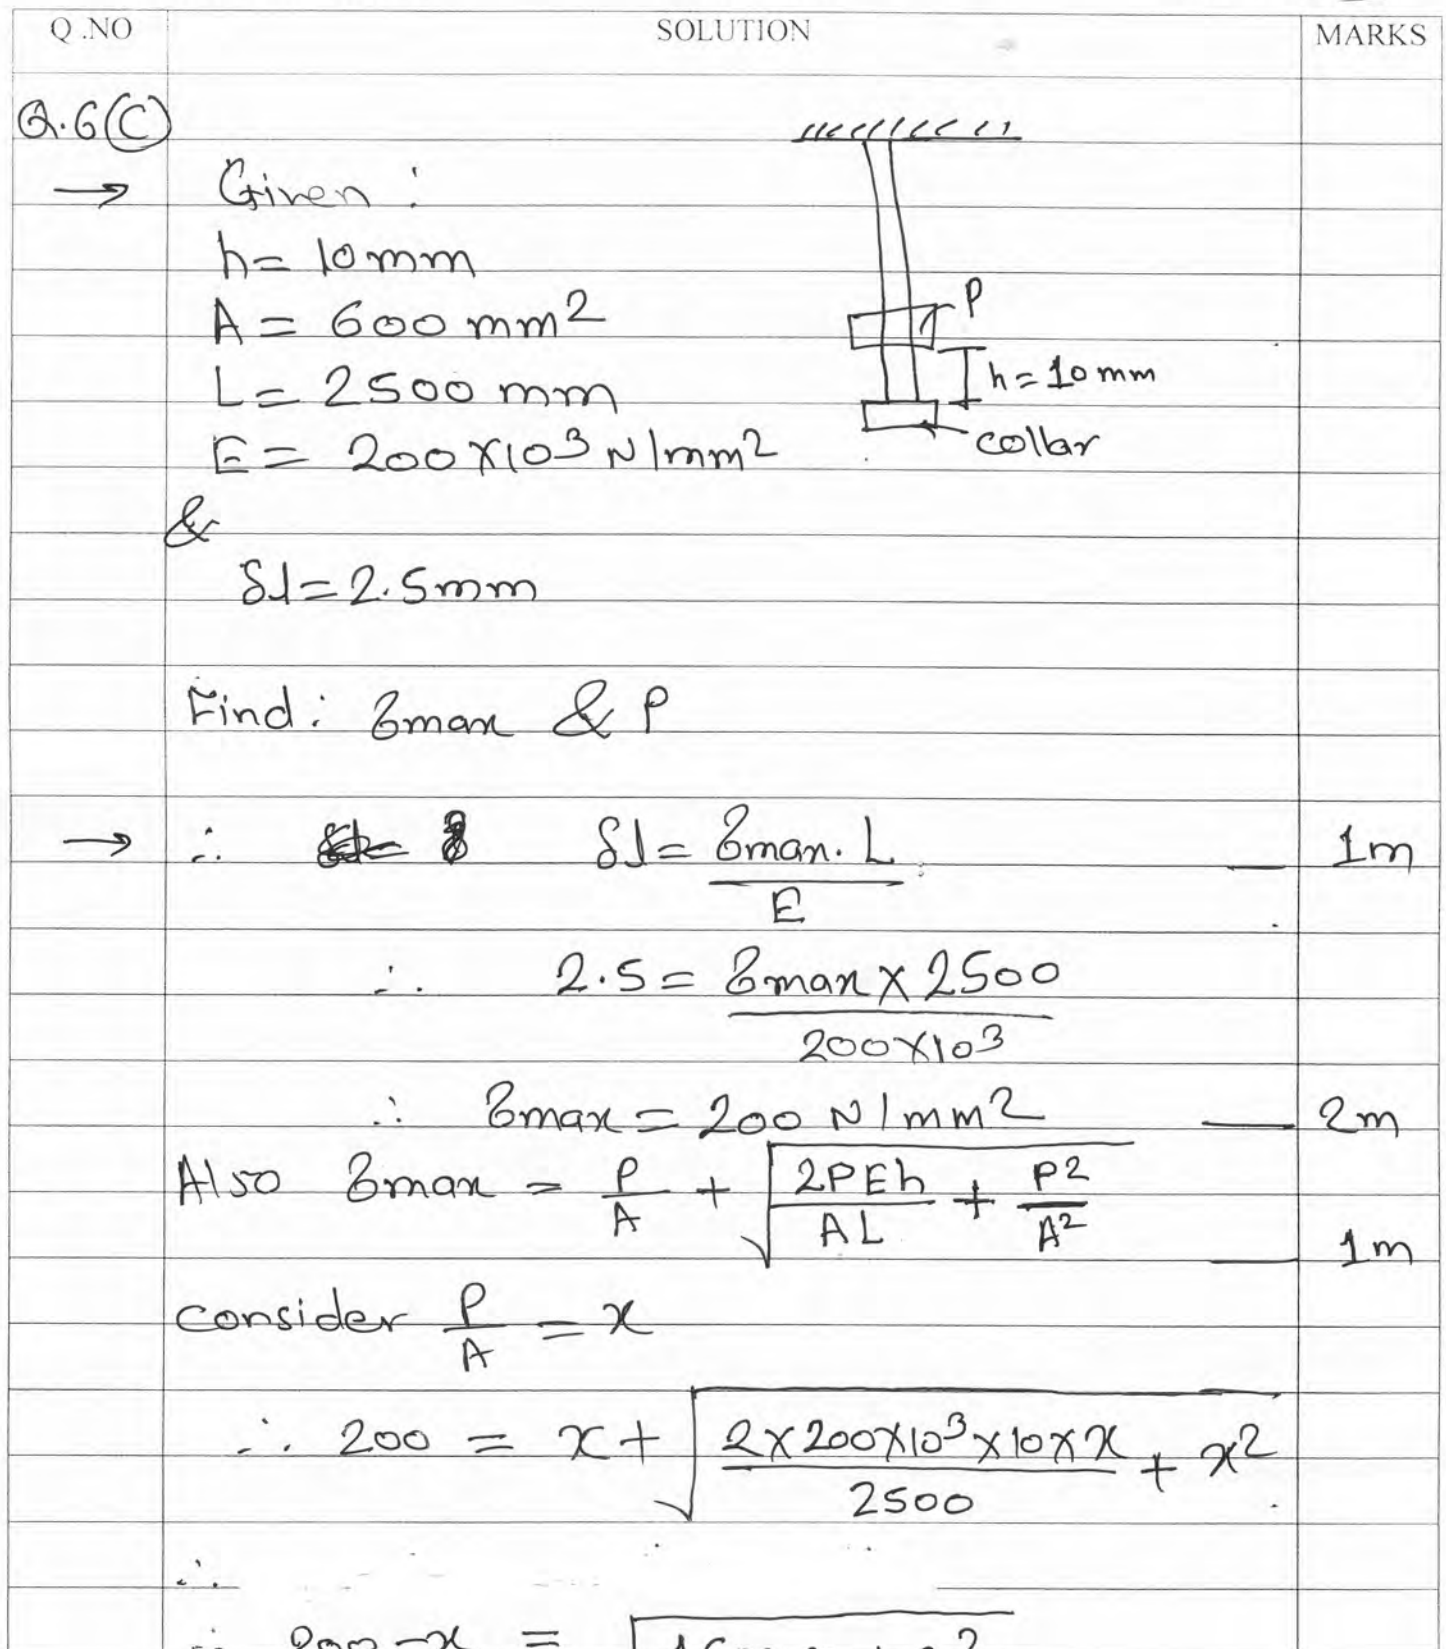 Q.NO SOLUTION MARKS
Q.6(C)
→ Given:
h = 10 mm
A = 600 mm²
L = 2500 mm
E = 200×10³ N/mm²
P
h = 10 mm
collar
&
δl = 2.5 mm
Find: σmax & P
→ ∴ δl = σmax. L / E — 1m
∴ 2.5 = σmax × 2500 / 200×10³
∴ σmax = 200 N/mm² — 2m
Also σmax = P/A + √(2PEh/AL + P²/A²) — 1m
consider P/A = x
∴ 200 = x + √(2×200×10³×10×x / 2500 + x²)
∴
∴ 200 - x =